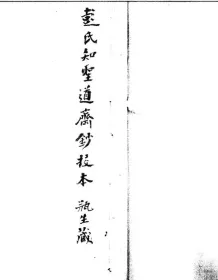 彭氏知聖道齋鈔校本 瓶生藏